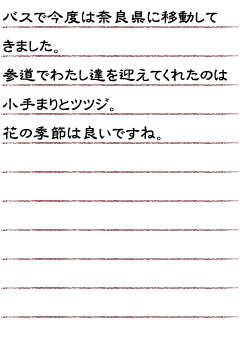 バスで今度は奈良県に移動して
きました。
参道でわたし達を迎えてくれたのは
小手まりとツツジ。
花の季節は良いですね。